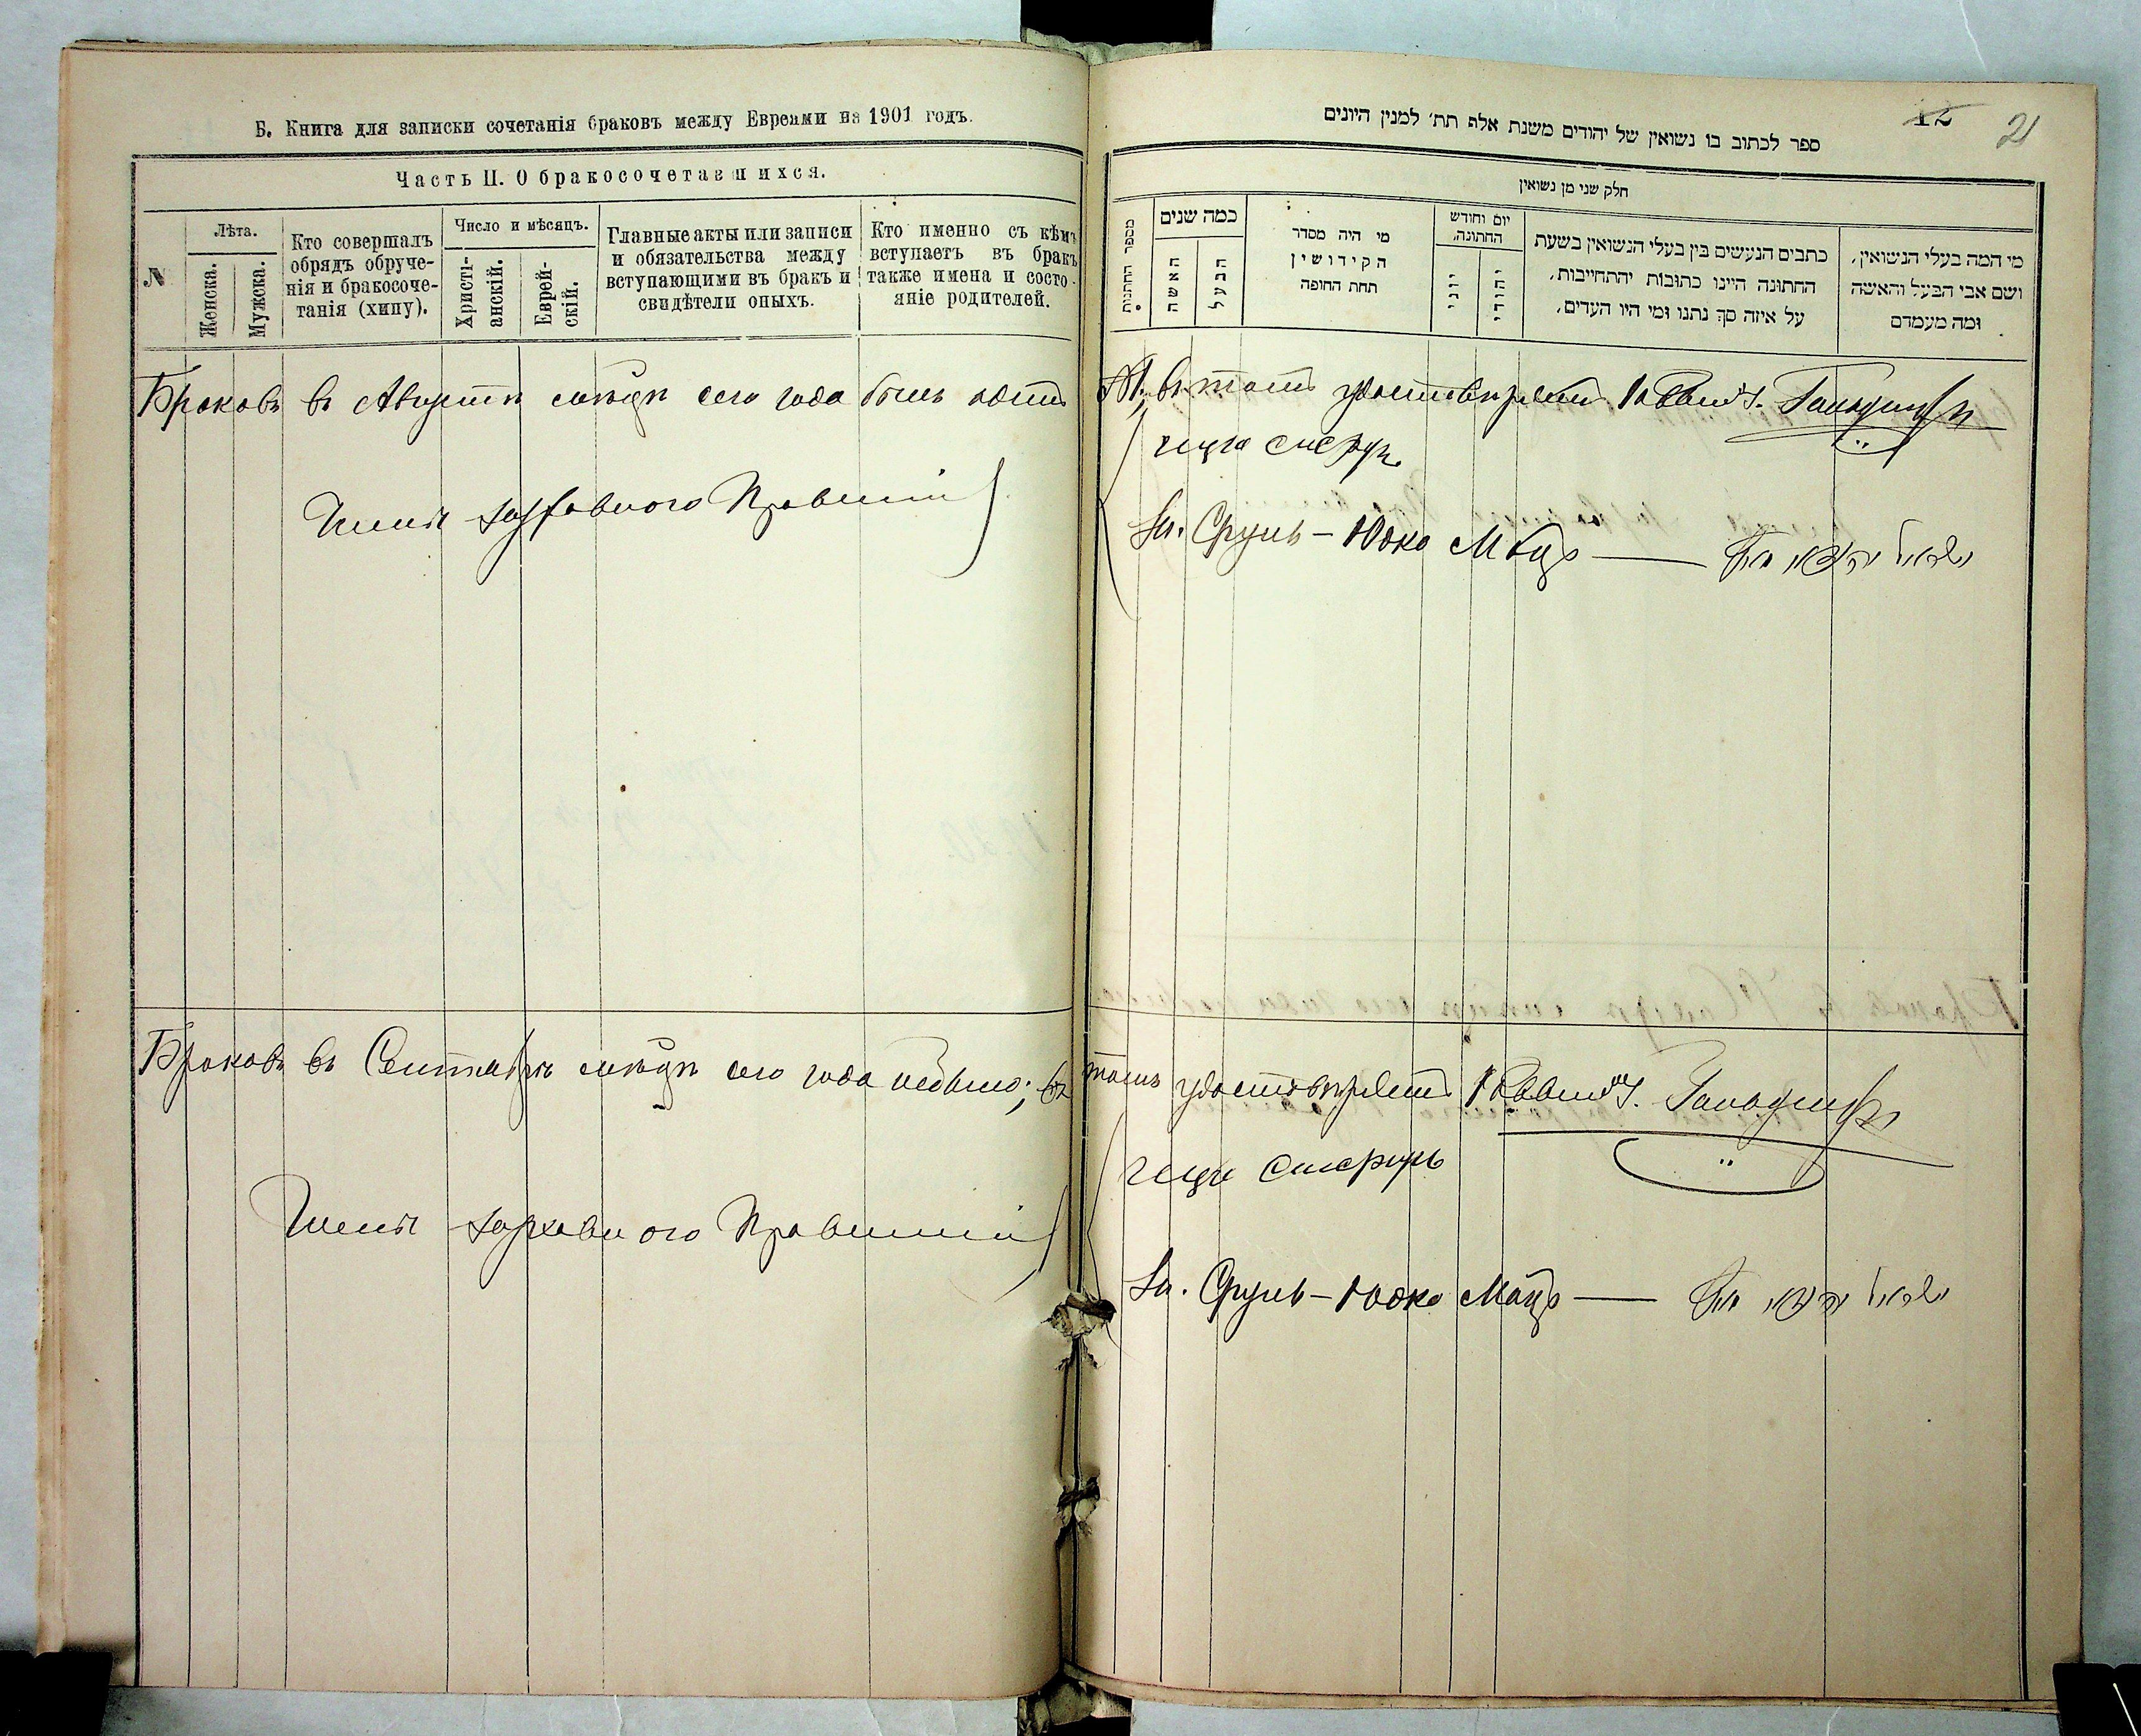 Б. Книга для записки сочетанія браковъ между Евреями на 1901 годъ.
Часть II. О бракосочетавшихся.
№
Лѣта.
Женска.
Мужска.
Кто совершалъ
обрядъ обруче-
нія и бракосоче-
танія (хипу).
Число и мѣсяцъ.
Христі-
анскій.
Еврей-
скій.
Главные акты или записи
и обязательства между
вступающими въ бракъ и
свидѣтели оныхъ.
Кто именно съ кѣмъ
вступаетъ въ бракъ
также имена и состо-
яніе родителей.
Браковъ въ Августѣ мѣсяцѣ сего года былъ одинъ
Члены духовного Правленія
Браковъ въ Сентябрѣ мѣсяцѣ сего года небыло; въ
Члены духовного Правленія
12
21
ספר לכתוב בו נשואין של יהודים משנת אלף תת׳ למנין היונים
חלק שני מן נשואין
מספר החתונות
כמה שנים
האשה
הבעל
מי היה מסדר
הקידושין
תחת החופה
יום וחודש
החתונה,
יוני
יהודי
כתבים הנעשים בין בעלי הנשואין בשעת
החתונה היינו כתובות והתחייבות,
על איזה סך נתנו ומי היו העדים,
מי המה בעלי הנשואין,
ושם אבי הבעל והאשה
ומה מעמדם
въ томъ удостовѣряетъ Раввинъ
Сруль-Юдко
томъ удостовѣряетъ Раввинъ
Сруль-Юдко